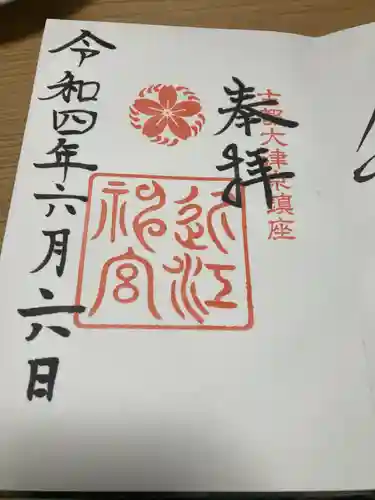 奉拝
古都大津京鎮座
近江
神宮
令和四年六月六日